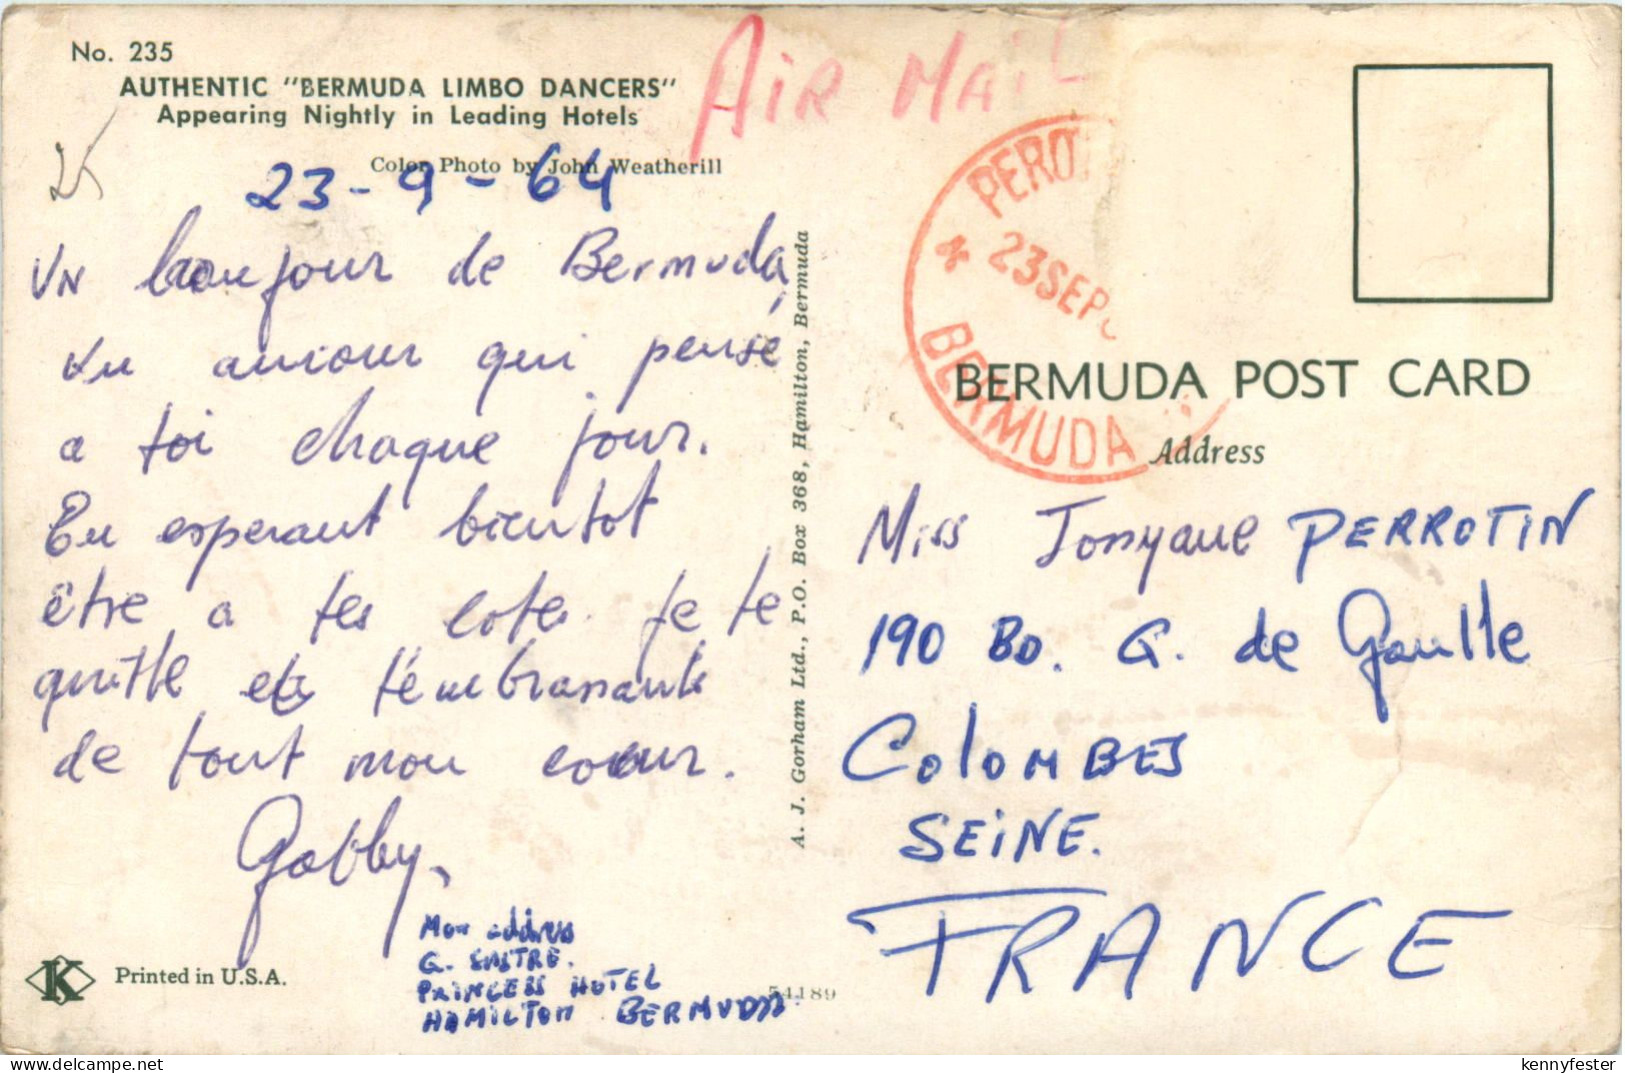 No. 235
AUTHENTIC "BERMUDA LIMBO DANCERS"
Appearing Nightly in Leading Hotels
Color Photo by John Weatherill
25
23-9-64
Un bonjour de Bermuda,
du amour qui pensé
a toi chaque jour.
En esperant bientot
être a tes cotes. je te
quitte et t'émbrassante
de tout mon coeur.
Gabby.
Mon address
G.
PRINCESS HOTEL
HAMILTON BERMUDA.
Printed in U.S.A.
K
54189
A. J. Gorham Ltd., P.O. Box 368, Hamilton, Bermuda
AiR MAiL
PEROT
23SEP6
BERMUDA
BERMUDA POST CARD
Address
Miss Josyane PERROTIN
190 BD. G. de Gaulle
COLOMBES
SEiNE.
FRANCE
delcampe.net
kennyfester